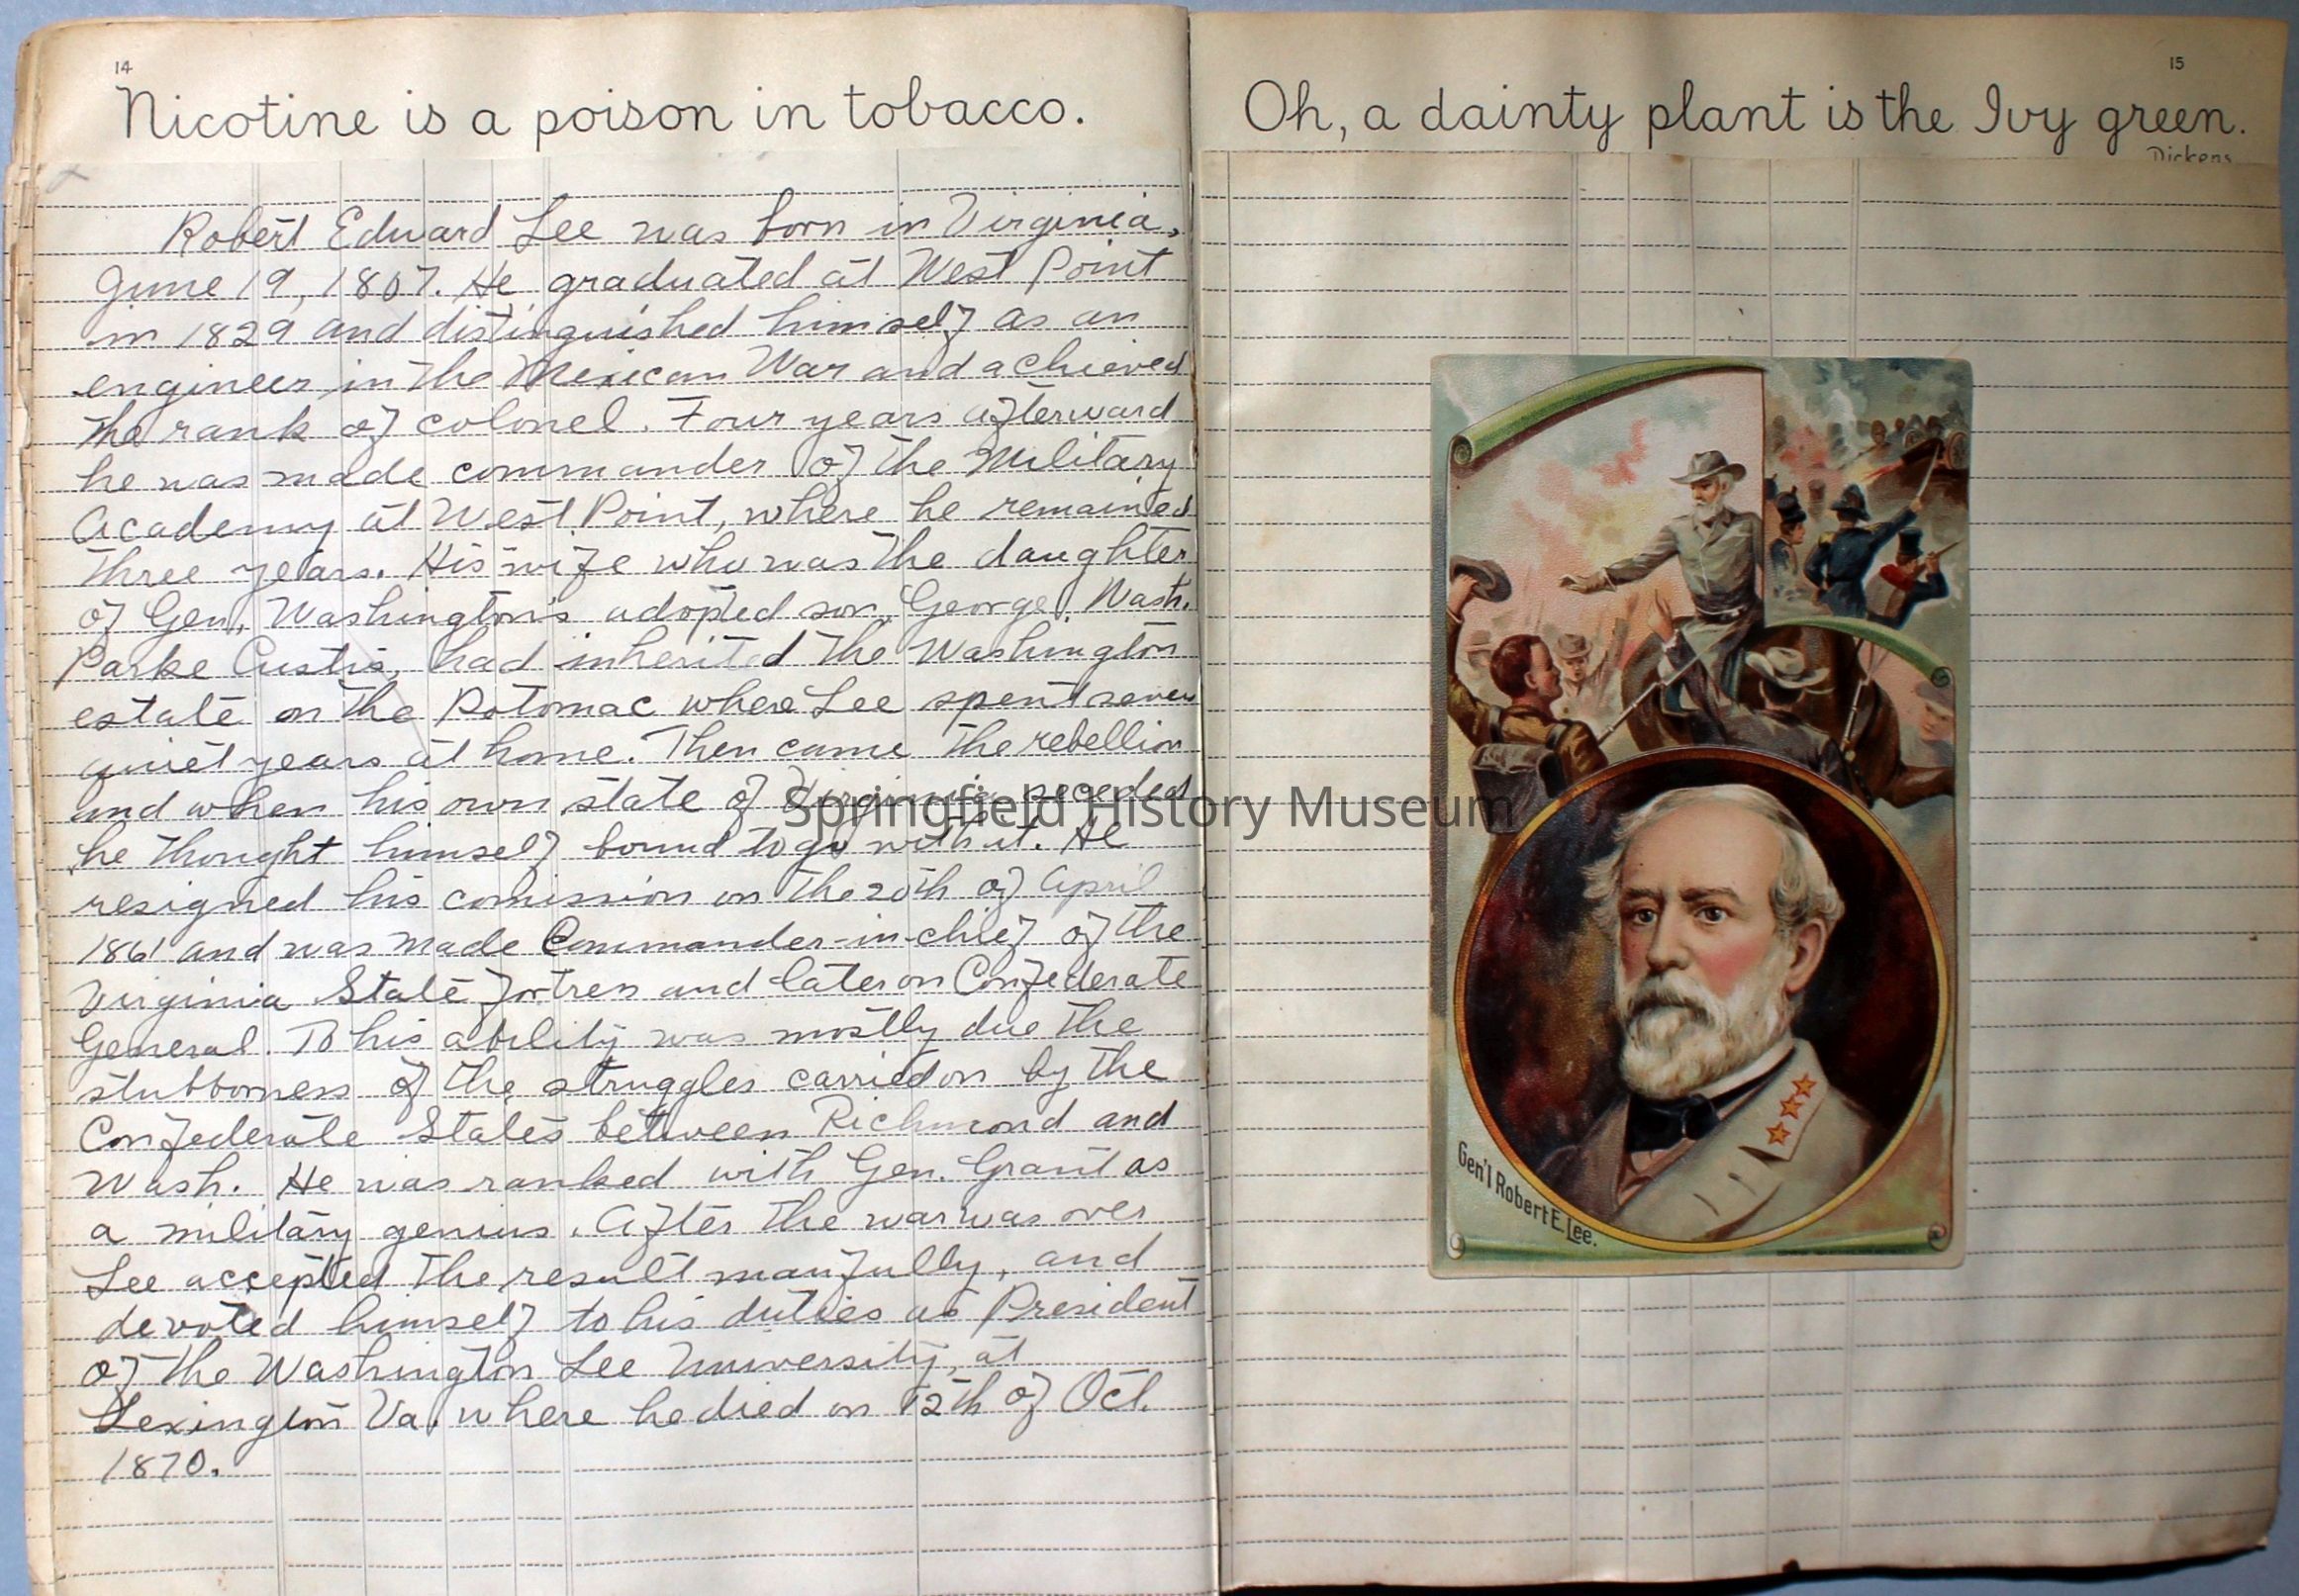 14
Nicotine is a poison in tobacco.
Robert Edward Lee was born in Virginia,
June 19, 1807. He graduated at West Point
in 1829 and distinguished himself as an
engineer in the Mexican War and achieved
the rank of colonel. Four years afterward
he was made commander of the Military
Academy at West Point, where he remained
three years. His wife who was the daughter
of Gen. Washington's adopted son, George Wash.
Parke Custis, had inherited the Washington
estate on the Potomac where Lee spent seven
quiet years at home. Then came the rebellion
and when his own state of Virginia seceded
he thought himself bound to go with it. He
resigned his comission on the 20th of April
1861 and was made Commander-in-chief of the
Virginia State fortress and later on Confederate
General. To his ability was mostly due the
stubborness of the struggles carried on by the
Confederate States between Richmond and
Wash. He was ranked with Gen. Grant as
a military genius. After the war was over
Lee accepted the result manfully, and
devoted himself to his duties as President
of the Washington Lee University, at
Lexington Va. where he died on 12th of Oct.
1870.
15
Oh, a dainty plant is the Ivy green.
Dickens
Gen'l Robert E. Lee.
Springfield History Museum